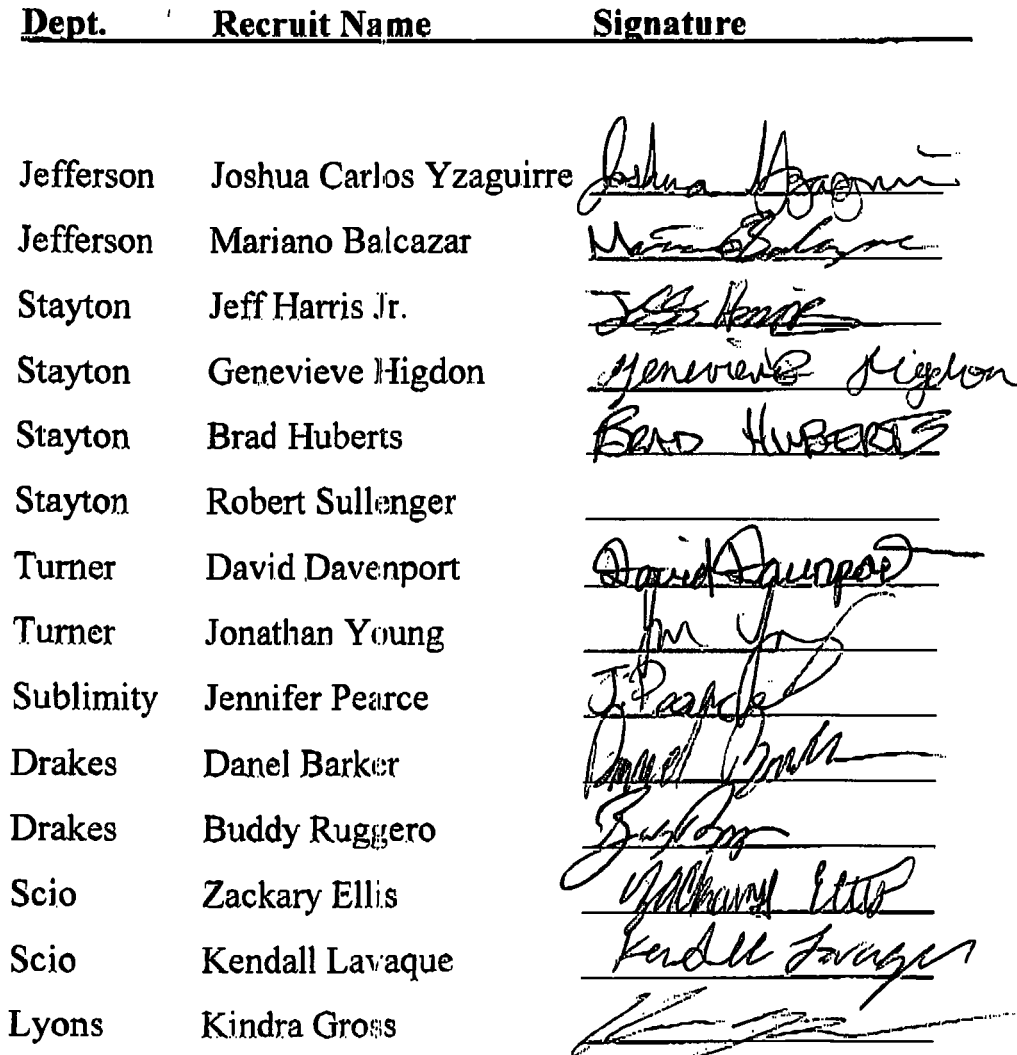 Dept. Recruit Name Signature
Jefferson Joshua Carlos Yzaguirre Joshua Yzaguirre
Jefferson Mariano Balcazar Mariano Balcazar
Stayton Jeff Harris Jr. Jeff Harris
Stayton Genevieve Higdon Genevieve Higdon
Stayton Brad Huberts BRAD HUBERTS
Stayton Robert Sullenger
Turner David Davenport David Davenport
Turner Jonathan Young
Sublimity Jennifer Pearce J. Pearce
Drakes Danel Barker
Drakes Buddy Ruggero
Scio Zackary Ellis
Scio Kendall Lavaque Kendall Lavaque
Lyons Kindra Gross